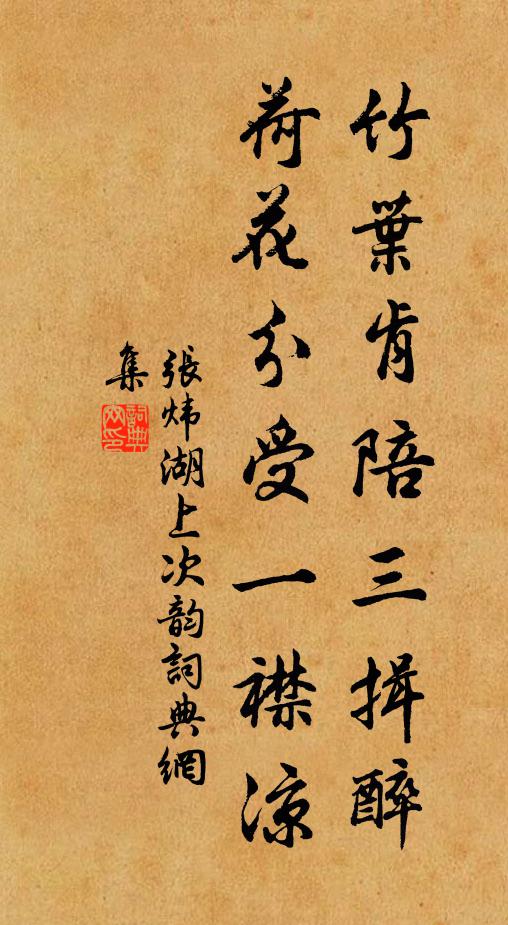 竹葉肯陪三揖醉
荷花分受一襟涼
張炜湖上次韵詞典網
集
詞典网印